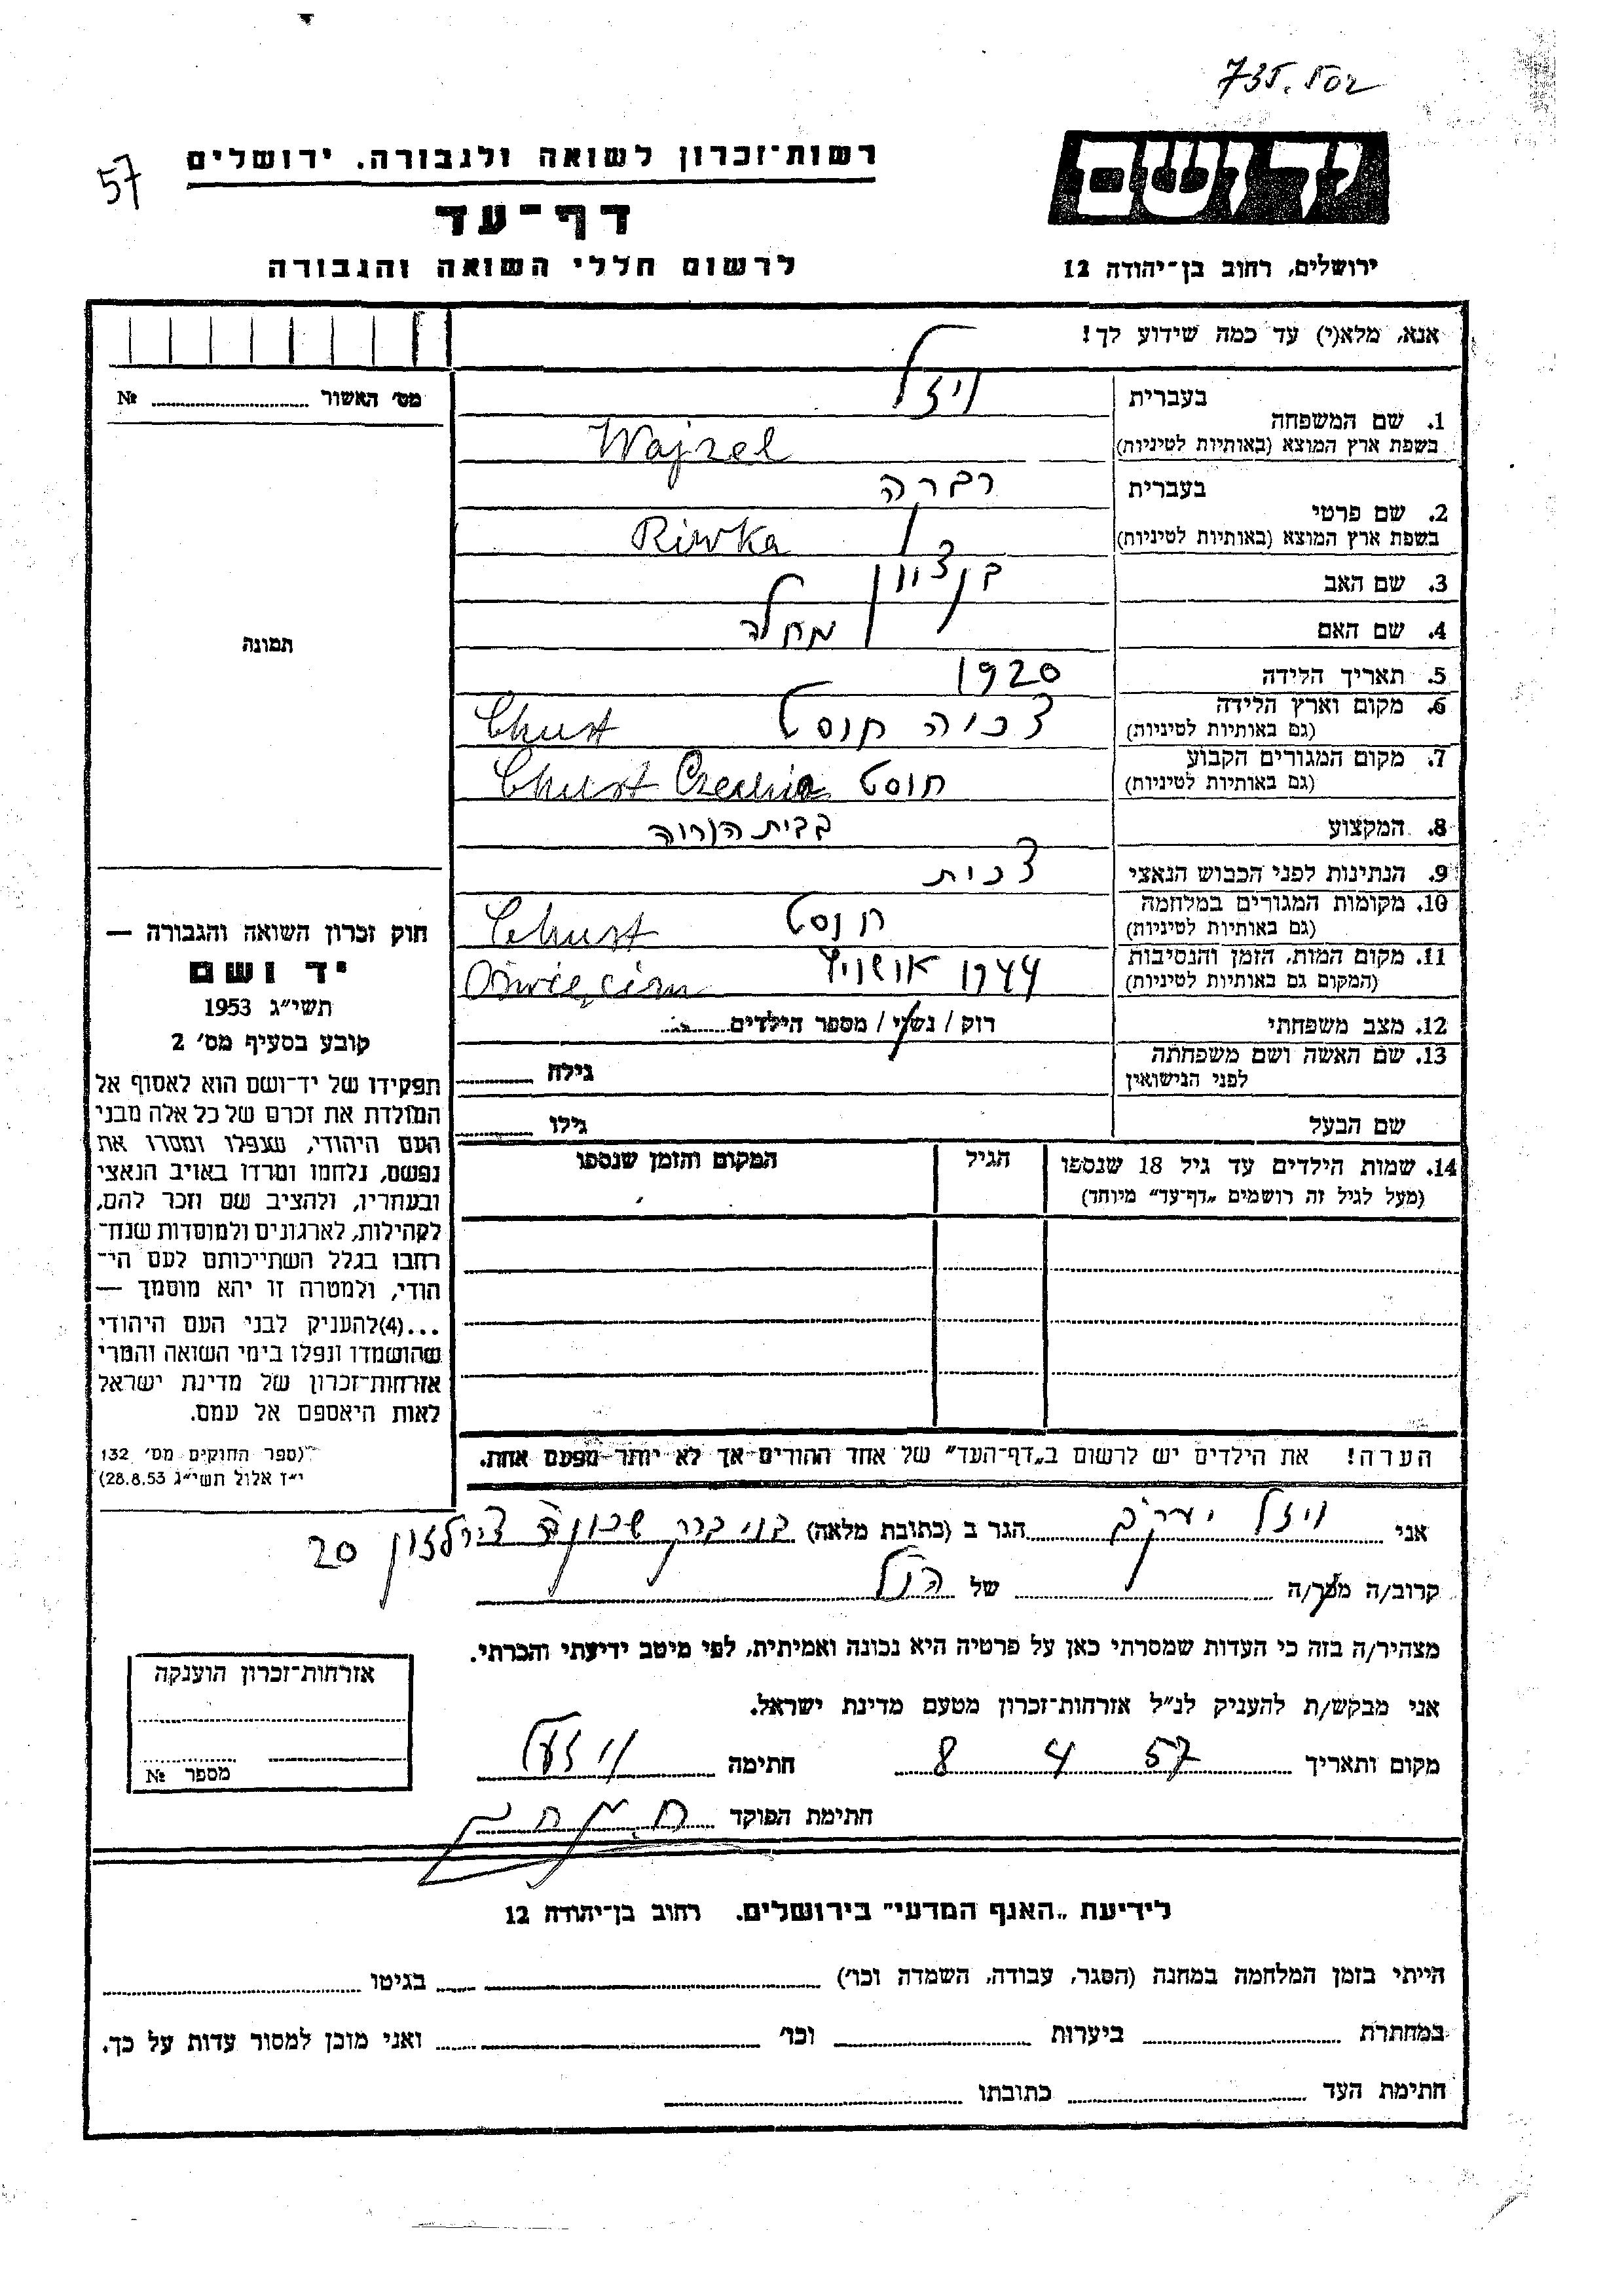 735.502
57
רשות־זכרון לשואה ולגבורה. ירושלים
יד ושם
דף־עד
לרשום חללי השואה והגבורה
ירושלים, רחוב בן־יהודה 12
אנא, מלא(י) עד כמה שידוע לך!
מס׳ האשור № 
תמונה
1. שם המשפחה
בעברית ויזל
בשפת ארץ המוצא (באותיות לטיניות) Wajzel
2. שם פרטי
בעברית רבקה
בשפת ארץ המוצא (באותיות לטיניות) Riwka
3. שם האב בן ציון
4. שם האם מחלה
5. תאריך הלידה 1920
6. מקום וארץ הלידה צכיה חוסט Chust
(גם באותיות לטיניות)
7. מקום המגורים הקבוע חוסט Chust Czechia
(גם באותיות לטיניות)
8. המקצוע בבית הורוה
9. הנתינות לפני הכבוש הנאצי צכית
10. מקומות המגורים במלחמה חוסט Chust
(גם באותיות לטיניות)
11. מקום המות, הזמן והנסיבות 1944 אושויץ Oświęcim
(המקום גם באותיות לטיניות)
12. מצב משפחתי רוק / נשוי / מספר הילדים
13. שם האשה ושם משפחתה
לפני הנישואין
גילה
שם הבעל גילו
14. שמות הילדים עד גיל 18 שנספו הגיל המקום והזמן שנספו
(מעל לגיל זה רושמים „דף־עד״ מיוחד)
הערה! את הילדים יש לרשום ב„דף־העד״ של אחד ההורים אך לא יותר מפעם אחת.
חוק זכרון השואה והגבורה —
יד ושם
תשי״ג 1953
קובע בסעיף מס׳ 2
תפקידו של יד־ושם הוא לאסוף אל
המולדת את זכרם של כל אלה מבני
העם היהודי, שנפלו ומסרו את
נפשם, נלחמו ומרדו באויב הנאצי
ובעוזריו, ולהציב שם וזכר להם,
לקהילות, לארגונים ולמוסדות שנח־
רבו בגלל השתייכותם לעם הי־
הודי, ולמטרה זו יהא מוסמך —
...(4)להעניק לבני העם היהודי
שהושמדו ונפלו בימי השואה והמרי
אזרחות־זכרון של מדינת ישראל
לאות היאספם אל עמם.
(ספר החוקים מס׳ 132
י״ז אלול תשי״ג 28.8.53)
אני ויזל יעקב הגר ב (כתובת מלאה) בני ברק שכונת 20
קרוב/ה מכר/ה של הנ״ל
מצהיר/ה בזה כי העדות שמסרתי כאן על פרטיה היא נכונה ואמיתית, לפי מיטב ידיעתי והכרתי.
אני מבקש/ת להעניק לנ״ל אזרחות־זכרון מטעם מדינת ישראל.
מקום ותאריך 57 4 8 חתימה
חתימת הפוקד
אזרחות־זכרון הוענקה
מספר №
לידיעת „האגף המדעי״ בירושלים. רחוב בן־יהודה 12
הייתי בזמן המלחמה במחנה (הסגר, עבודה, השמדה וכו׳) בגיטו
במחתרת ביערות וכו׳ ואני מוכן למסור עדות על כך.
חתימת העד כתובתו